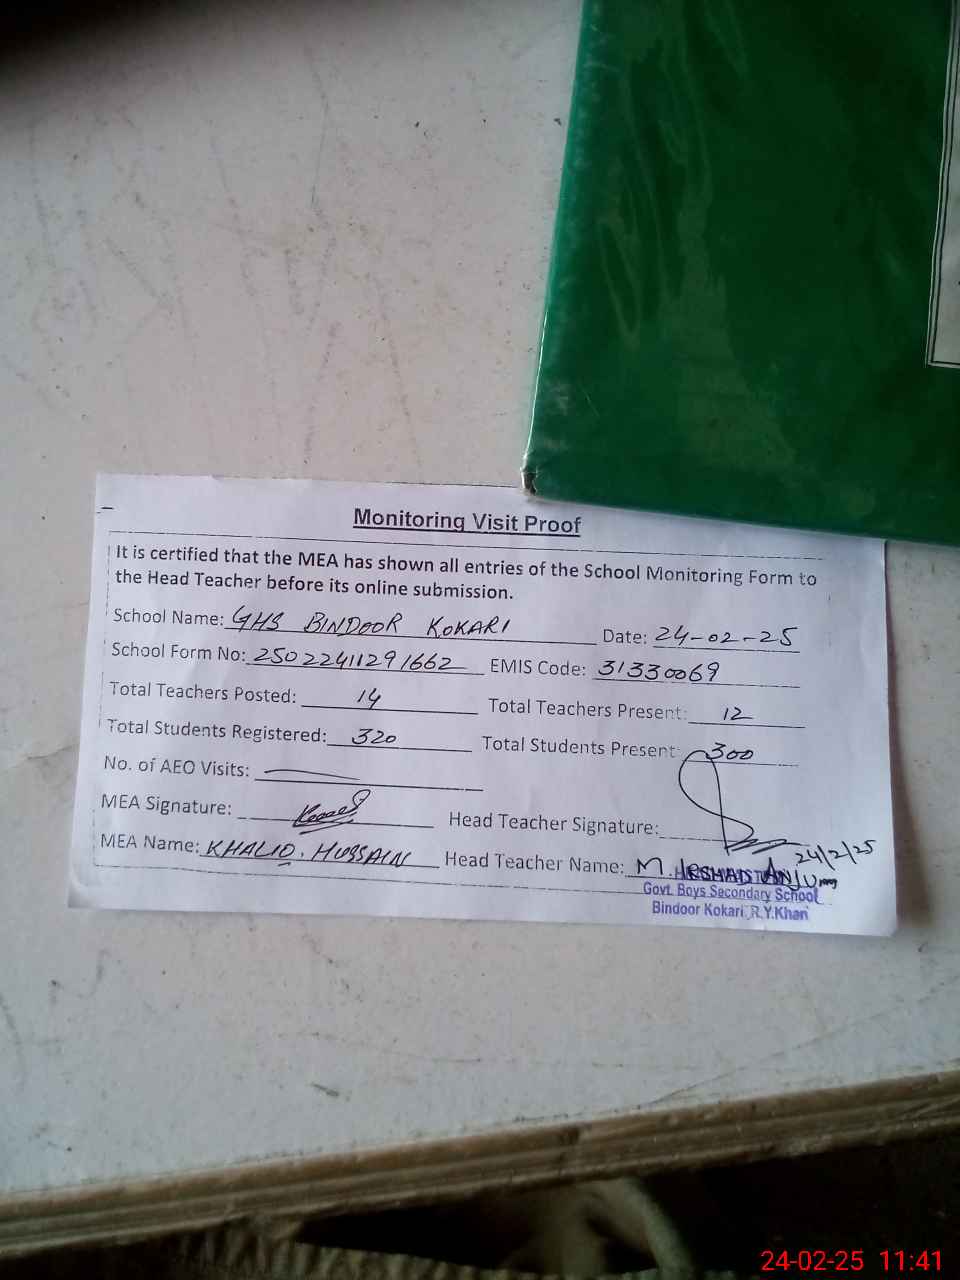 Monitoring Visit Proof
It is certified that the MEA has shown all entries of the School Monitoring Form to
the Head Teacher before its online submission.
School Name: GHS BINDOOR KOKARI Date: 24-02-25
School Form No: 25022411291662 EMIS Code: 31330069
Total Teachers Posted: 14 Total Teachers Present: 12
Total Students Registered: 320 Total Students Present: 300
No. of AEO Visits: —
MEA Signature: Head Teacher Signature:
24/2/25
MEA Name: KHALID. HUSSAIN Head Teacher Name: M. IRSHAD ANJUM
Govt. Boys Secondary School
Bindoor Kokari, R.Y.Khan
24-02-25 11:41